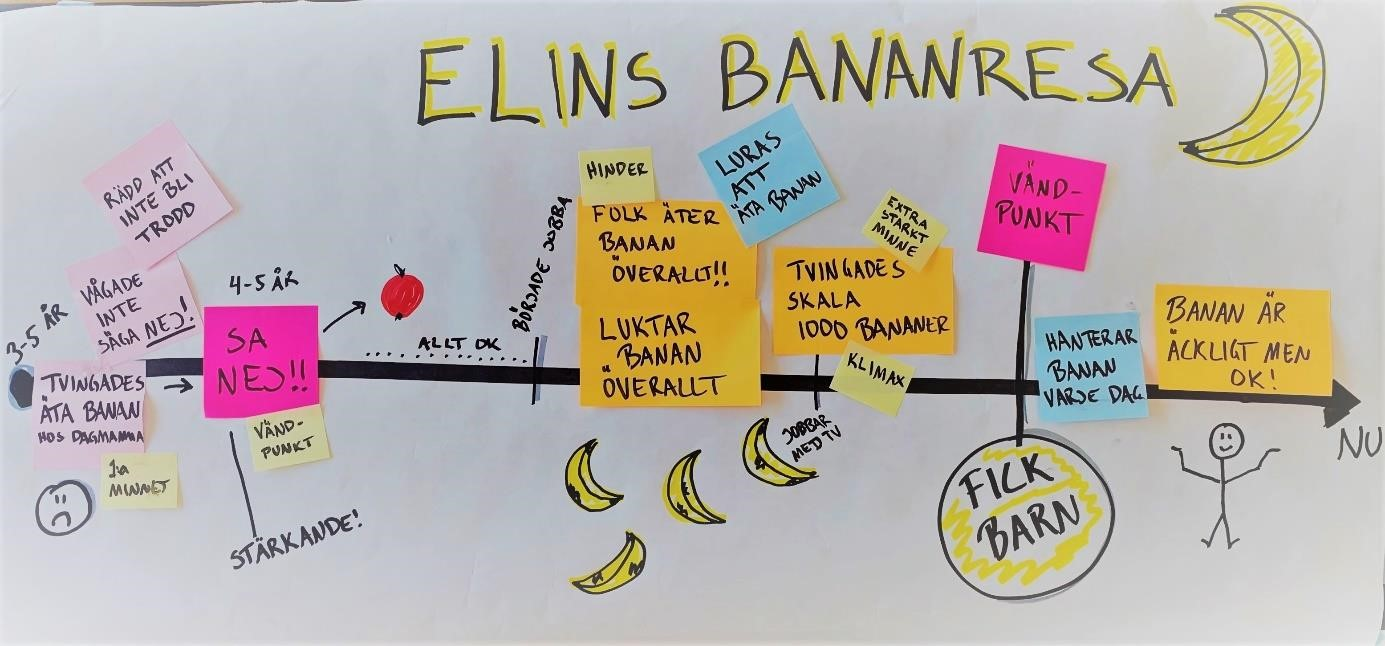 ELINS BANANRESA
RÄDD ATT
INTE BLI
TRODD
VÅGADE
INTE
SÄGA NEJ!
3-5 ÅR
TVINGADES
ÄTA BANAN
HOS DAGMAMMA
1a
MINNET
4-5 ÅR
SA
NEJ!!
VÄND-
PUNKT
STÄRKANDE!
ALLT OK
BÖRJADE JOBBA
HINDER
FOLK ÄTER
BANAN
ÖVERALLT!!
LUKTAR
BANAN
ÖVERALLT
LURAS
ATT
ÄTA BANAN
EXTRA
STARKT
MINNE
TVINGADES
SKALA
1000 BANANER
KLIMAX
JOBBAR
MED TV
VÄND-
PUNKT
FICK
BARN
HANTERAR
BANAN
VARJE DAG
BANAN ÄR
ÄCKLIGT MEN
OK!
NU